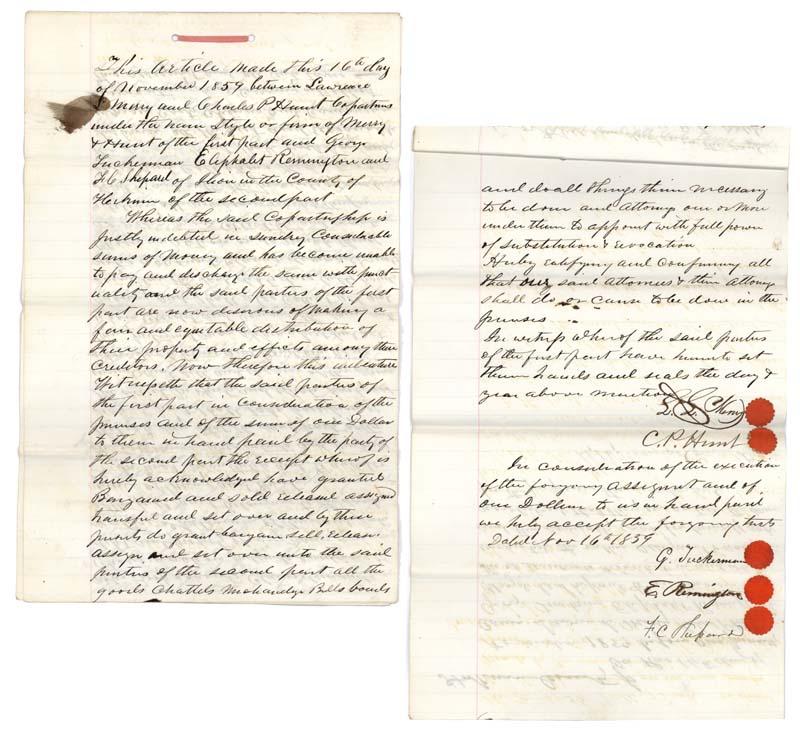 This Article made this 16th day
of November 1859 between Lawrence
L Merry and Charles P Hunt Copartners
under the name Style or firm of Merry
& Hunt of the first part and George
Tuckerman Eliphalet Remington and
F C Shepard of Ilion in the County of
Herkimer of the second part
Whereas the said Copartnership is
justly indebted in sundry Considerable
sums of Money and has become unable
to pay and discharge the same with punct
uality and the said parties of the first
part are now desirous of making a
fair and equitable distribution of
their property and effects among their
Creditors. Now therefore this indenture
Witnesseth that the said parties of
the first part in consideration of the
premises and of the sum of one Dollar
to them in hand paid by the party of
the second part the receipt whereof is
hereby acknowledged have granted
Bargained and sold released assigned
transfed and set over and by these
presents do grant bargain sell, release
assign and set over unto the said
parties of the second part all the
goods Chattels Mchandze Bills bonds
and do all things therein necessary
to be done and Attorney one or more
under them to appoint with full power
of substitution & revocation
Hereby ratifying and confirming all
that our said Attornies & their Attorney
shall do or cause to be done in the
premises
In witness whereof the said parties
of the first part have hereunto set
their hands and seals the day &
year above mention
C. P. Hunt
In consideration of the execution
of the forgoing assignment and of
one Dollar to us in hand paid
we hereby accept the forgoing trust
Dated Nov 16th 1859
G. Tuckerman
E. Remington
F. C. Shepard